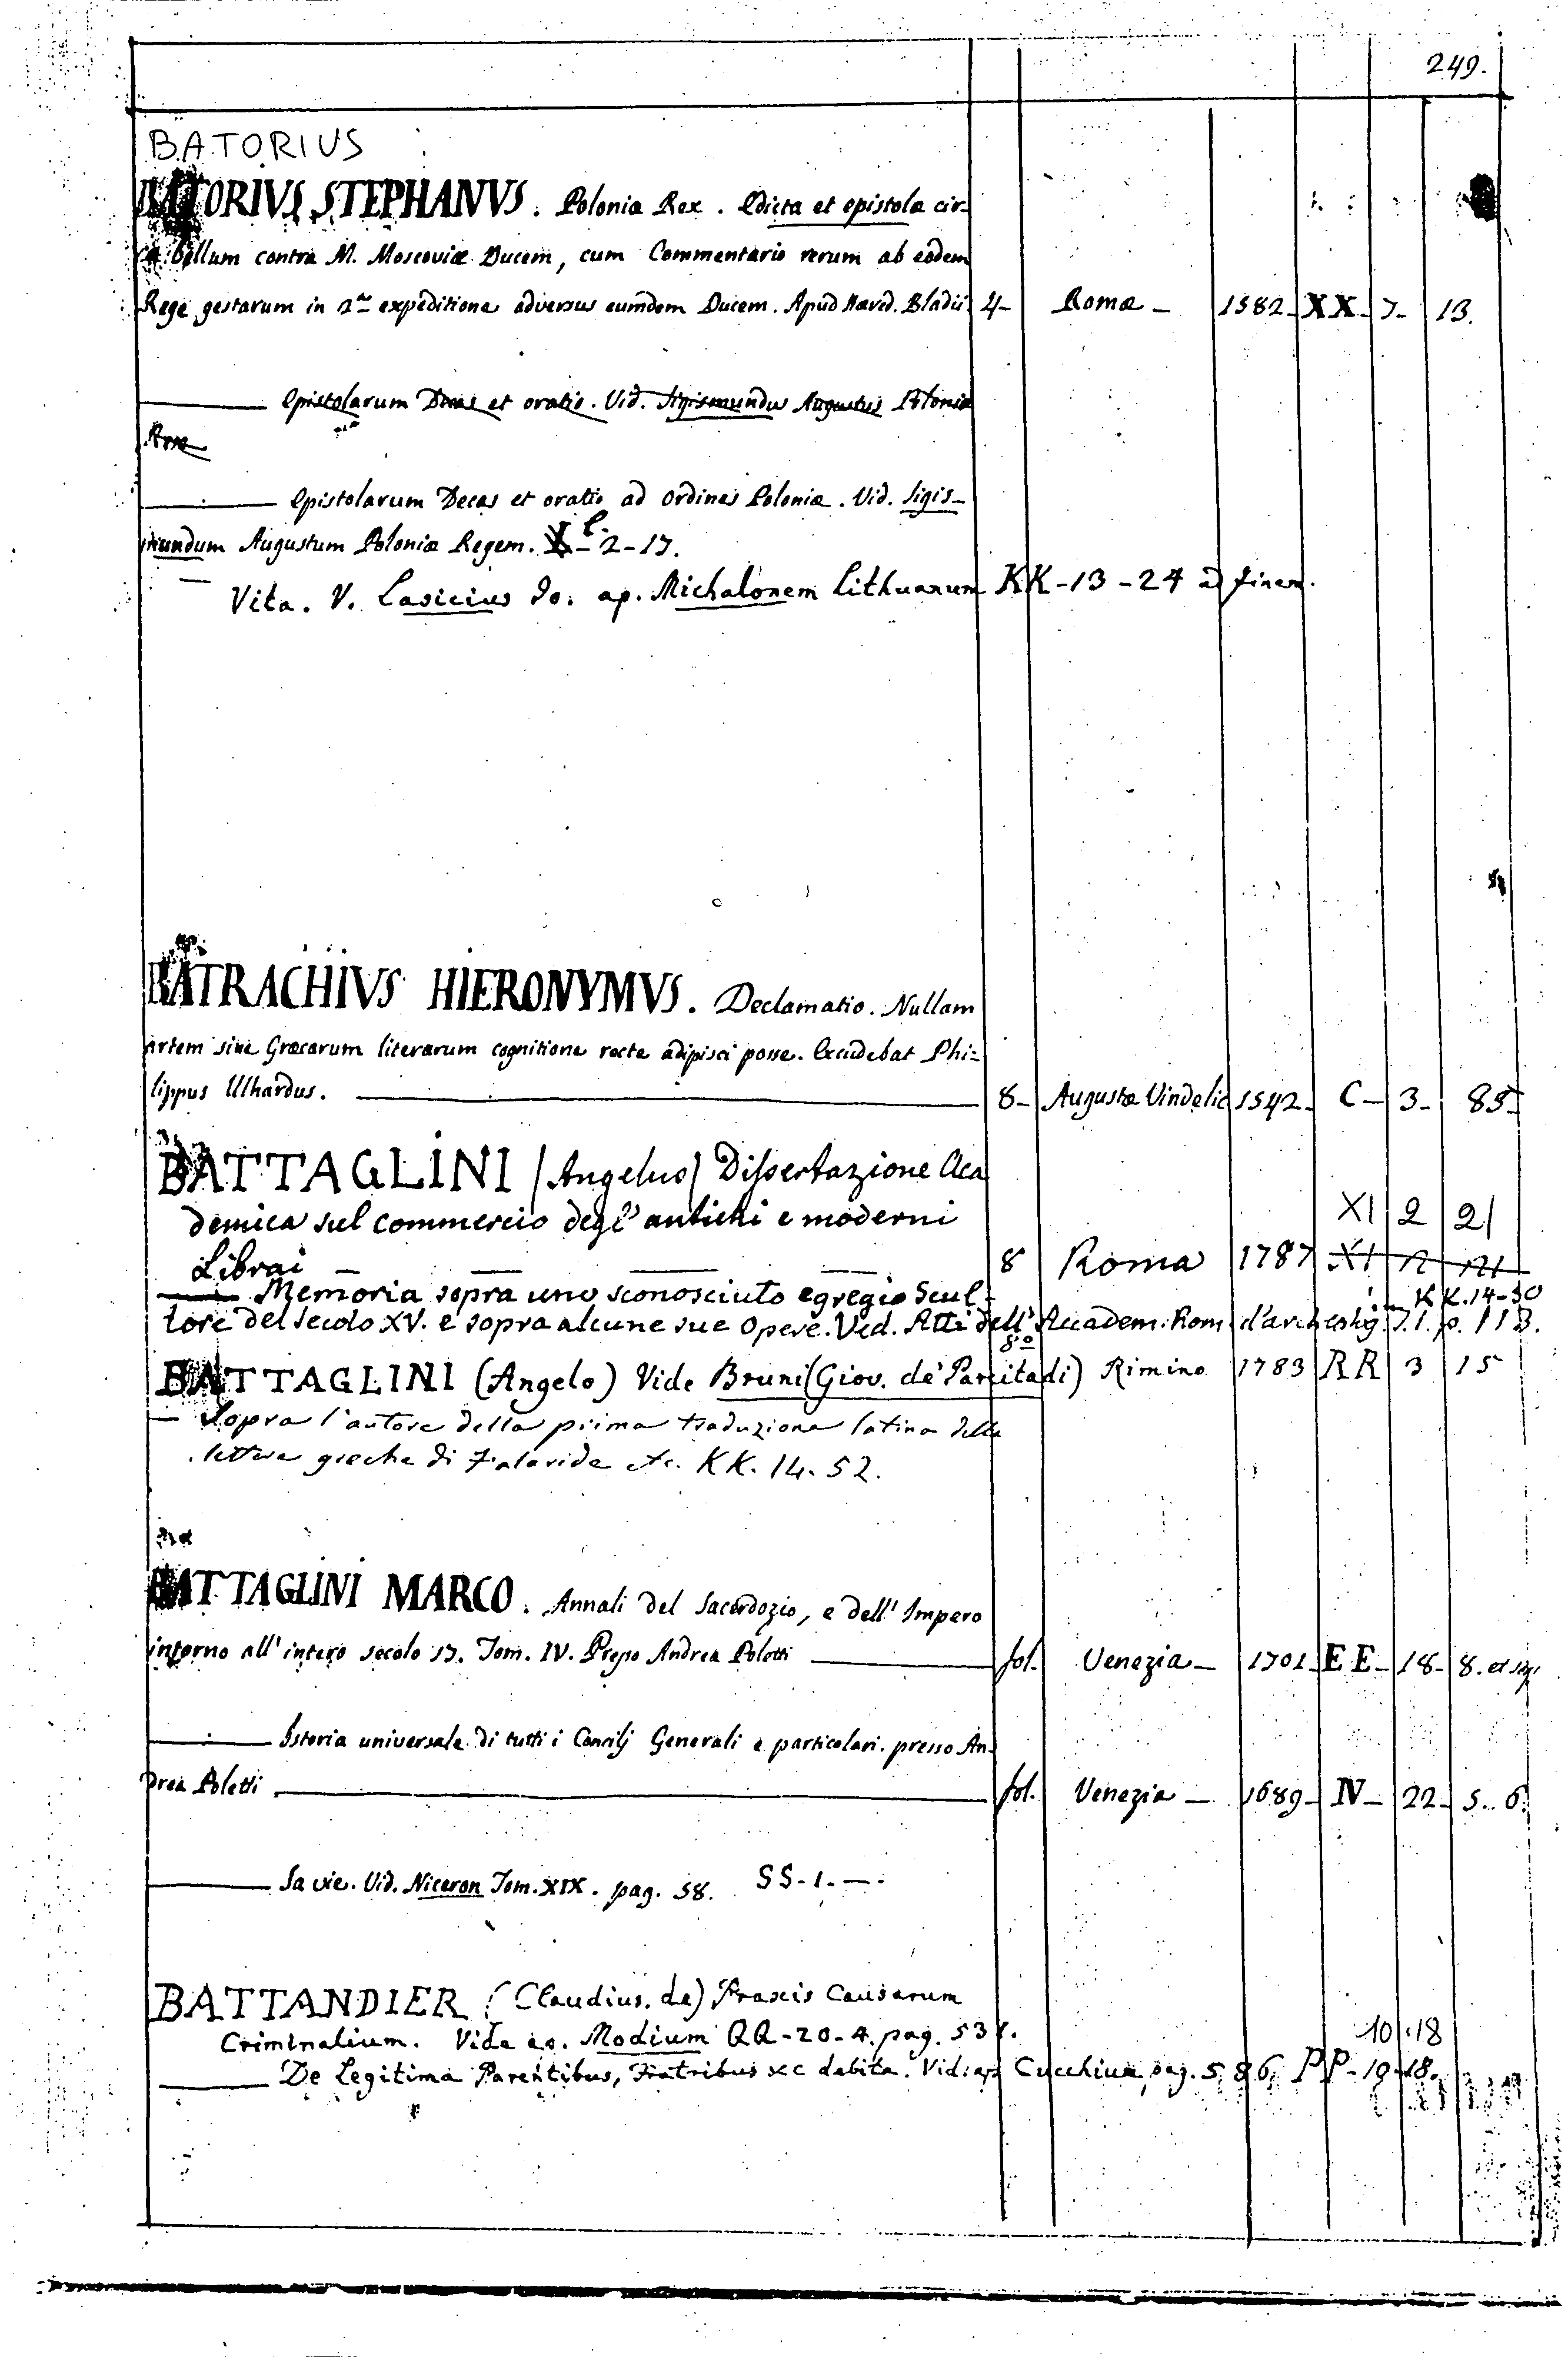 249.
BATORIUS
BATORIVS STEPHANVS. Poloniæ Rex. Edicta et epistola cir-
ca bellum contra M. Moscoviæ Ducem, cum Commentario rerum ab eodem
Rege gestarum in 2ᵃ expeditione adversus eumdem Ducem. Apud Hæred. Bladii. 4- Romæ - 1582- XX- 7- 13.
Epistolarum Decas et oratio. Vid. Sigismundus Augustus Poloniæ
Rex
Epistolarum Decas et oratio ad ordines Poloniæ. Vid. Sigis-
mundum Augustum Poloniæ Regem. - 2-17.
Vita. V. Lasicius Jo. ap. Michalonem Lithuanum KK-13-24 ad finem.
BATRACHIVS HIERONYMVS. Declamatio. Nullam
artem sine Græcarum literarum cognitione recte adipisci posse. Excudebat Phi-
lippus Ulhardus. 8- Augustæ Vindelic 1542- C- 3- 85-
BATTAGLINI (Angelus) Dissertazione Aca
demica sul commercio degl' antichi e moderni XI 2 21
Librai 8 Roma 1787 XI
Memoria sopra uno sconosciuto egregio Scul- KK.14-30
tore del secolo XV. e sopra alcune sue Opere. Ved. Atti dell' Accadem. Rom d'archeolog. T.1. p. 113.
BATTAGLINI (Angelo) Vide Bruni (Giov. de' Parcitadi) 8º Rimino 1783 RR 3 15
— Sopra l'autore della prima traduzione latina delle
lettere greche di Falaride etc. KK. 14. 52.
BATTAGLINI MARCO. Annali del Sacerdozio, e dell' Impero
intorno all' intero secolo 17. Tom. IV. Presso Andrea Poletti fol. Venezia- 1701- EE- 18- 8. et sq.
Istoria universale di tutti i Concilj Generali e particolari. presso An-
drea Poletti fol. Venezia - 1689- IV- 22- 5. 6.
Sa vie. Vid. Niceron Tom. XIX. pag. 58. SS-1.-.
BATTANDIER (Claudius. de) Praxis Causarum
Criminalium. Vide Modium QQ-20-4. pag. 531. 10.18
De Legitima Parentibus, Fratribus &c debita. Vid: ap Cucchium pag. 586, PP-19-18.